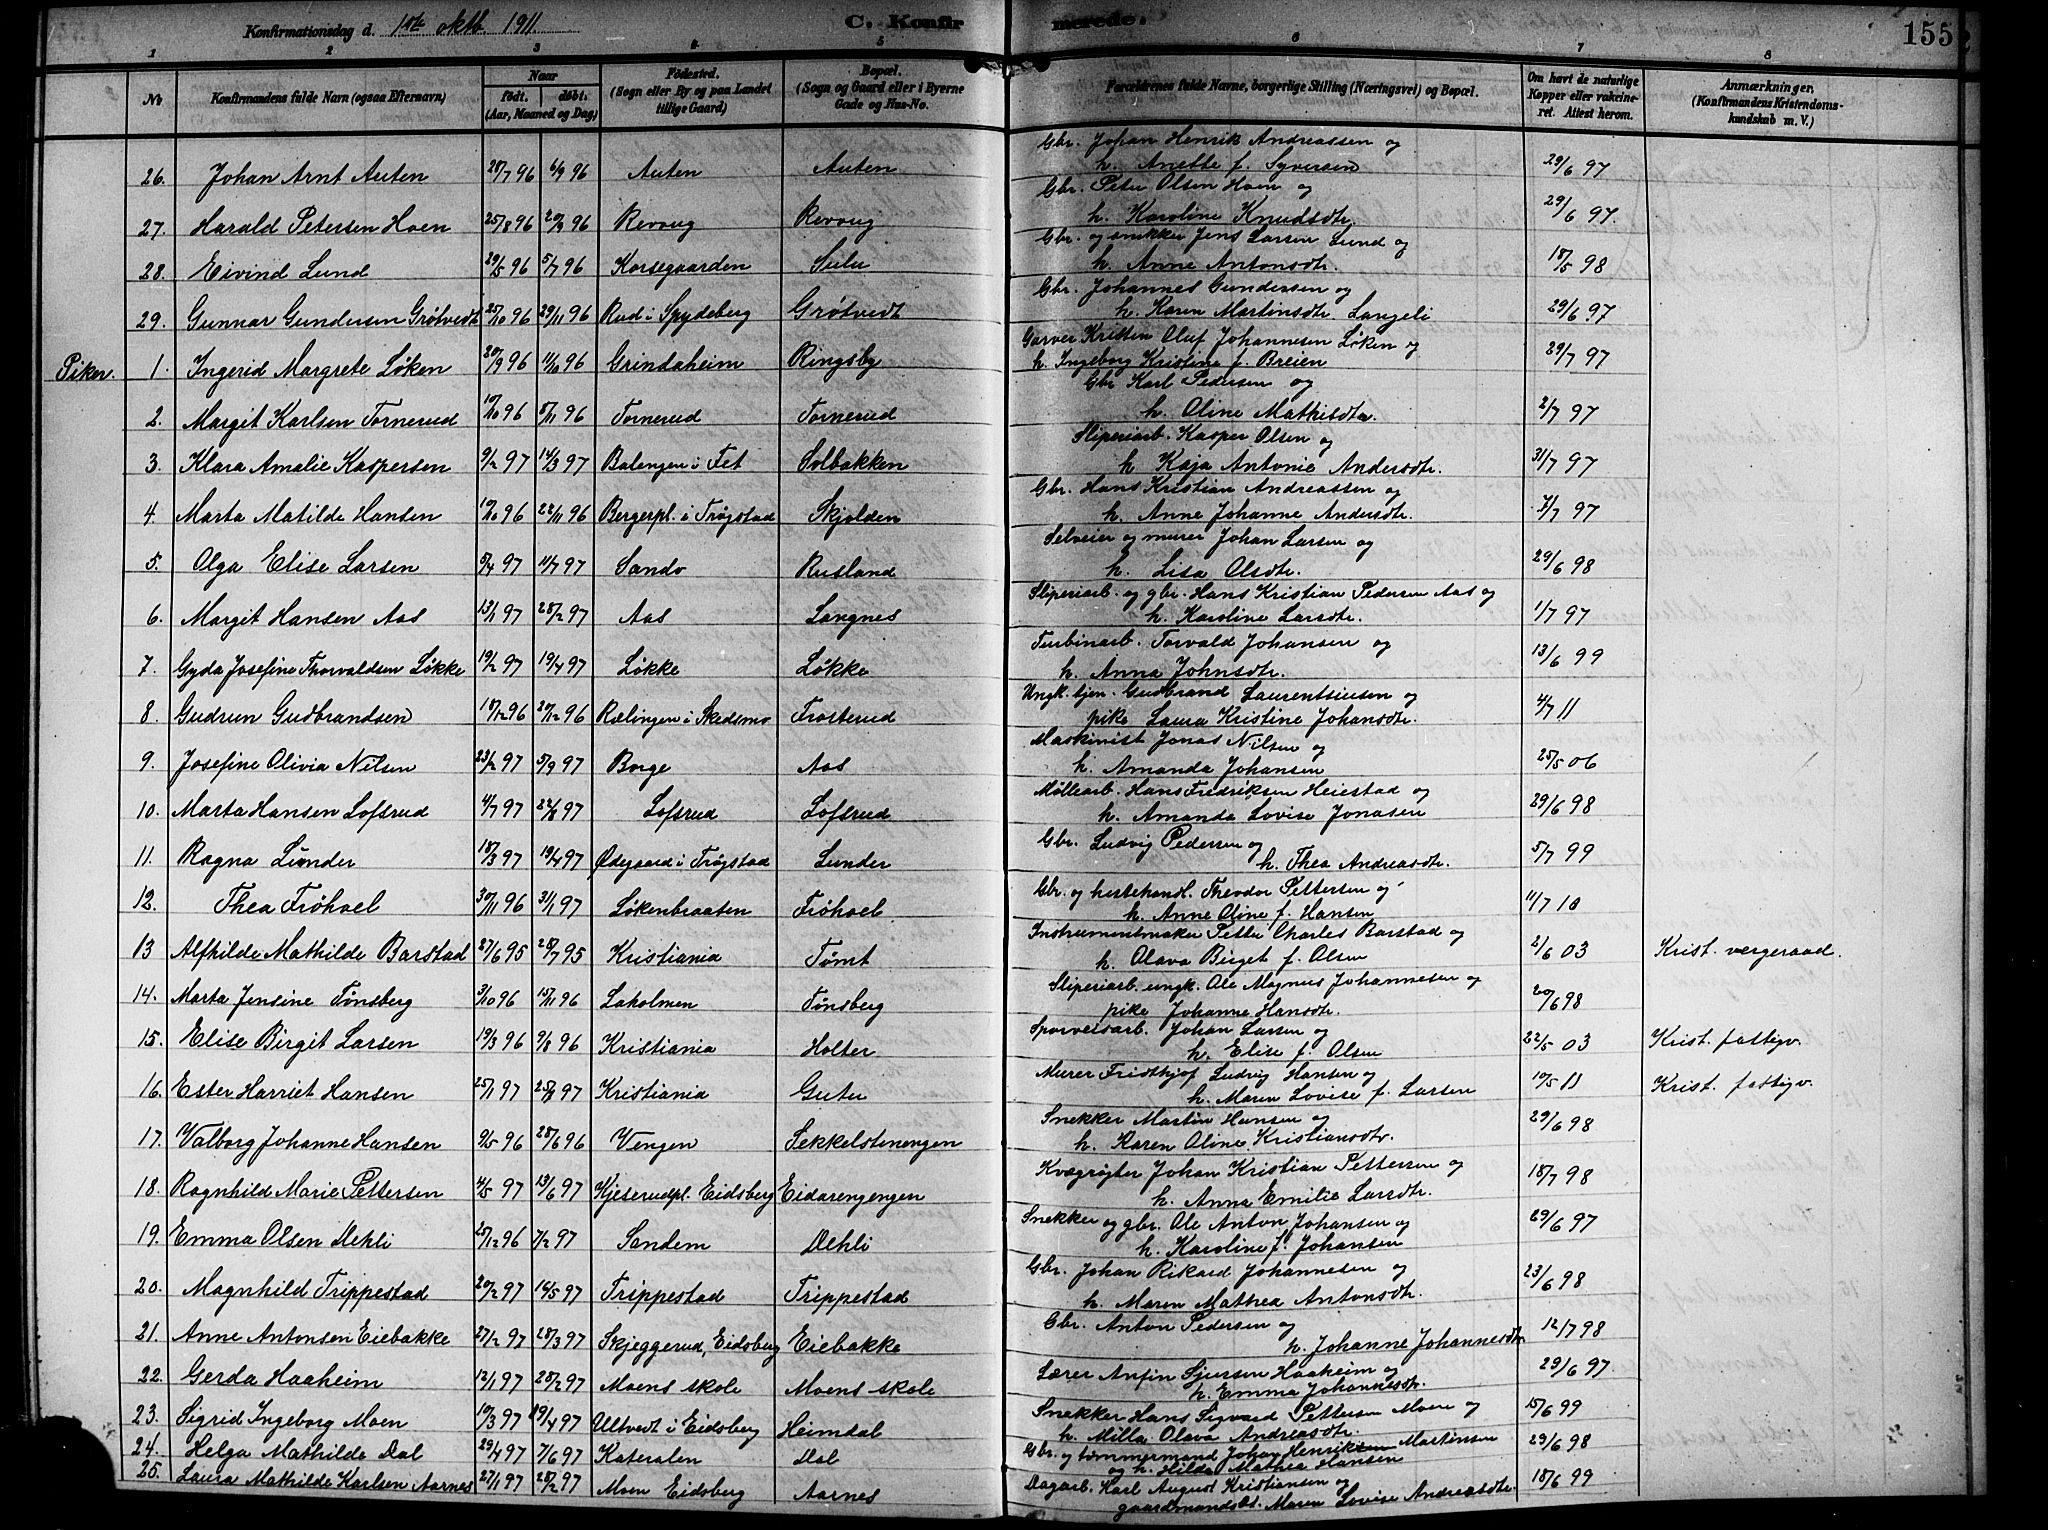 Konfirmationsdag d. 1ste oktb. 1911. C. Konfirmerede. 155
1 2 3 4 5 6 7 8
No Konfirmandens fulde Navn (ogsaa Efternavn) Naar født. døbt. (Aar, Maaned og Dag) Fødested. (Sogn eller By og paa Landet tillige Gaard) Bopæl. (Sogn og Gaard eller i Byerne Gade og Hus-No. Forældrenes fulde Navne, borgerlige Stilling (Næringsvei) og Bopæl. Om havt de naturlige Kopper eller vakcineret. Attest herom. Anmærkninger. (Konfirmandens Kristendomskundskab m. V.)
26. Johan Arnt Auten 28/7 96 6/9 96 Auten Auten Gbr. Johan Henrik Andreassen og h. Anette f. Syversen 29/6 97
27. Harald Petersen Hoen 25/8 96 20/9 96 Revoug Revoug Gbr. Peter Olsen Hoen og h. Karoline Knudsdtr. 29/6 97.
28. Eivind Lund 29/5 96 5/7 96 Korsegaarden Sulu Gbr. og snekker Jens Larsen Lund og h. Anne Antonsdtr. 18/5 98
29. Gunnar Gundersen Grøtvedt 25/10 96 29/11 96 Rud i Spydeberg Grøtvedt Gbr. Johannes Gundersen og h. Karen Martinsdtr. Langeli 29/6 97
Piker. 1. Ingerid Margrete Løken 20/9 96 11/10 96 Grindaheim Ringsby Garver Kristen Oluf Johannesen Løken og h. Ingeborg Kristine f. Breien 29/7 97
2. Margit Karlsen Tornerud 10/10 96 8/11 96 Tornerud Tornerud Gbr Karl Pedersen og h. Oline Mathisdtr. 2/7 97
3. Klara Amalie Kaspersen 9/2 97 14/3 97 Balengen i Fet Solbakken Sliperiarb. Kasper Olsen og h Kaja Antonie Andersdtr. 31/7 97
4. Marta Matilde Hansen 19/10 96 22/11 96 Bergerpl. i Trøgstad Skjolden Gbr. Hans Kristian Andreassen og h. Anne Johanne Andersdtr. 7/7 97
5. Olga Elise Larsen 5/4 97 11/7 97 Sando Rusland Selveier og murer Johan Larsen og h. Lisa Olsdtr. 29/6 98
6. Margit Hansen Aas 13/1 97 28/2 97 Aas Langnes Sliperiarb. og gbr. Hans Kristian Pedersen Aas og h. Karoline Larsdtr. 1/7 97
7. Gyda Josefine Thorvaldsen Løkke 19/2 97 19/4 97 Løkke Løkke Turbinarb. Torvald Johansen og h. Anna Johnsdtr. 13/6 99
8. Gudrun Gudbrandsen 18/12 96 20/12 96 Rælingen i Skedsmo Frosterud Ungk. tjen. Gudbrand Laurentsiusen og pike Laura Kristine Johansdtr. 4/7 11
9. Josefine Olivia Nilsen 23/2 97 5/9 97 Borge Aas Maskinist Jonas Nilsen og h. Amanda Johansen 25/5 06
10. Marta Hansen Lofsrud 4/7 97 22/8 97 Lofsrud Lofsrud Møllearb. Hans Fredriksen Heiestad og h. Amanda Lovise Jonasen 29/6 98
11. Ragna Lunder 18/3 97 19/4 97 Ødegaard i Trøgstad Lunder Gbr. Ludvig Pedersen og h. Thea Andreasdtr. 5/7 99
12. Thea Frøhoel 30/11 96 31/1 97 Løkenbraaten Frøhoel. Gbr. og hestehandl. Theodor Pettersen og h. Anne Oline f. Hansen 11/7 10
13 Alfhilde Mathilde Barstad 27/6 95 28/7 95 Kristiania Tømt Instrumentmaker Petter Charles Barstad og h. Olava Birget f. Olsen 2/6 03 Krist. vergeraad.
14. Marta Jensine Tønsberg 3/10 96 15/11 96 Laholmen Tønsberg Sliperiarb. ungk. Ole Magnus Johannesen og pike Johanne Hansdtr. 20/6 98
15. Elise Birgit Larsen 19/3 96 9/8 96 Kristiania Holter Sporveisarb. Johan Larsen og h. Elise f. Olsen 22/5 03 Krist. fattigv.
16. Ester Harriet Hansen 25/1 97 25/8 97 Kristiania Gutu Murer Fridthjof Ludvig Hansen og h. Maren Lovise f. Larsen 10/5 11 Krist. fattigv.
17. Valborg Johanne Hansen 9/5 96 28/6 96 Vengen Sekkelstenengen Snekker Martin Hansen og h. Karen Oline Kristiansdtr. 29/6 98
18. Ragnhild Marie Pettersen 4/5 97 13/6 97 Kjeserudpl. Eidsberg Eidarengengen Kvægrøgter Johan Kristian Pettersen og h. Anna Emilie Larsdtr. 18/7 98
19. Emma Olsen Dehli 25/12 96 7/2 97 Sandem Dehli Snekker og gbr. Ole Anton Johansen og h. Karoline f. Johansen 29/6 97
20. Magnhild Trippestad 20/2 97 16/5 97 Trippestad Trippestad Gbr. Johan Rikard Johannesen og h. Maren Mathea Antonsdtr. 23/6 98
21. Anne Antonsen Eiebakke 27/2 97 28/3 97 Skjeggerud, Eidsberg Eiebakke Gbr. Anton Pedersen og h. Johanne Johannesdtr. 12/7 98
22. Gerda Haaheim 12/1 97 28/2 97 Moens skole Moens skole Lærer Anfin Sjursen Haaheim og h. Emma Johannesdtr. 29/6 97.
23. Sigrid Ingeborg Moen 19/3 97 19/4 97 Ultvedt i Eidsberg Heimdal Snekker Hans Sigvard Pettersen Moen og h. Milla Olava Andreasdtr. 15/6 99
24. Helga Mathilde Dal 29/4 97 7/6 97 Kateralen Dal Gbr. og tømmermand Johan Henriksen Martinsen og h. Hilda Mathea Hansen 29/6 98
25. Laura Mathilde Karlsen Aarnes 27/1 97 28/2 97 Moen Eidsberg Aarnes Dagarb. Karl August Kristiansen og gaardmandsdt. Maren Lovise Andreasdtr. 18/6 99